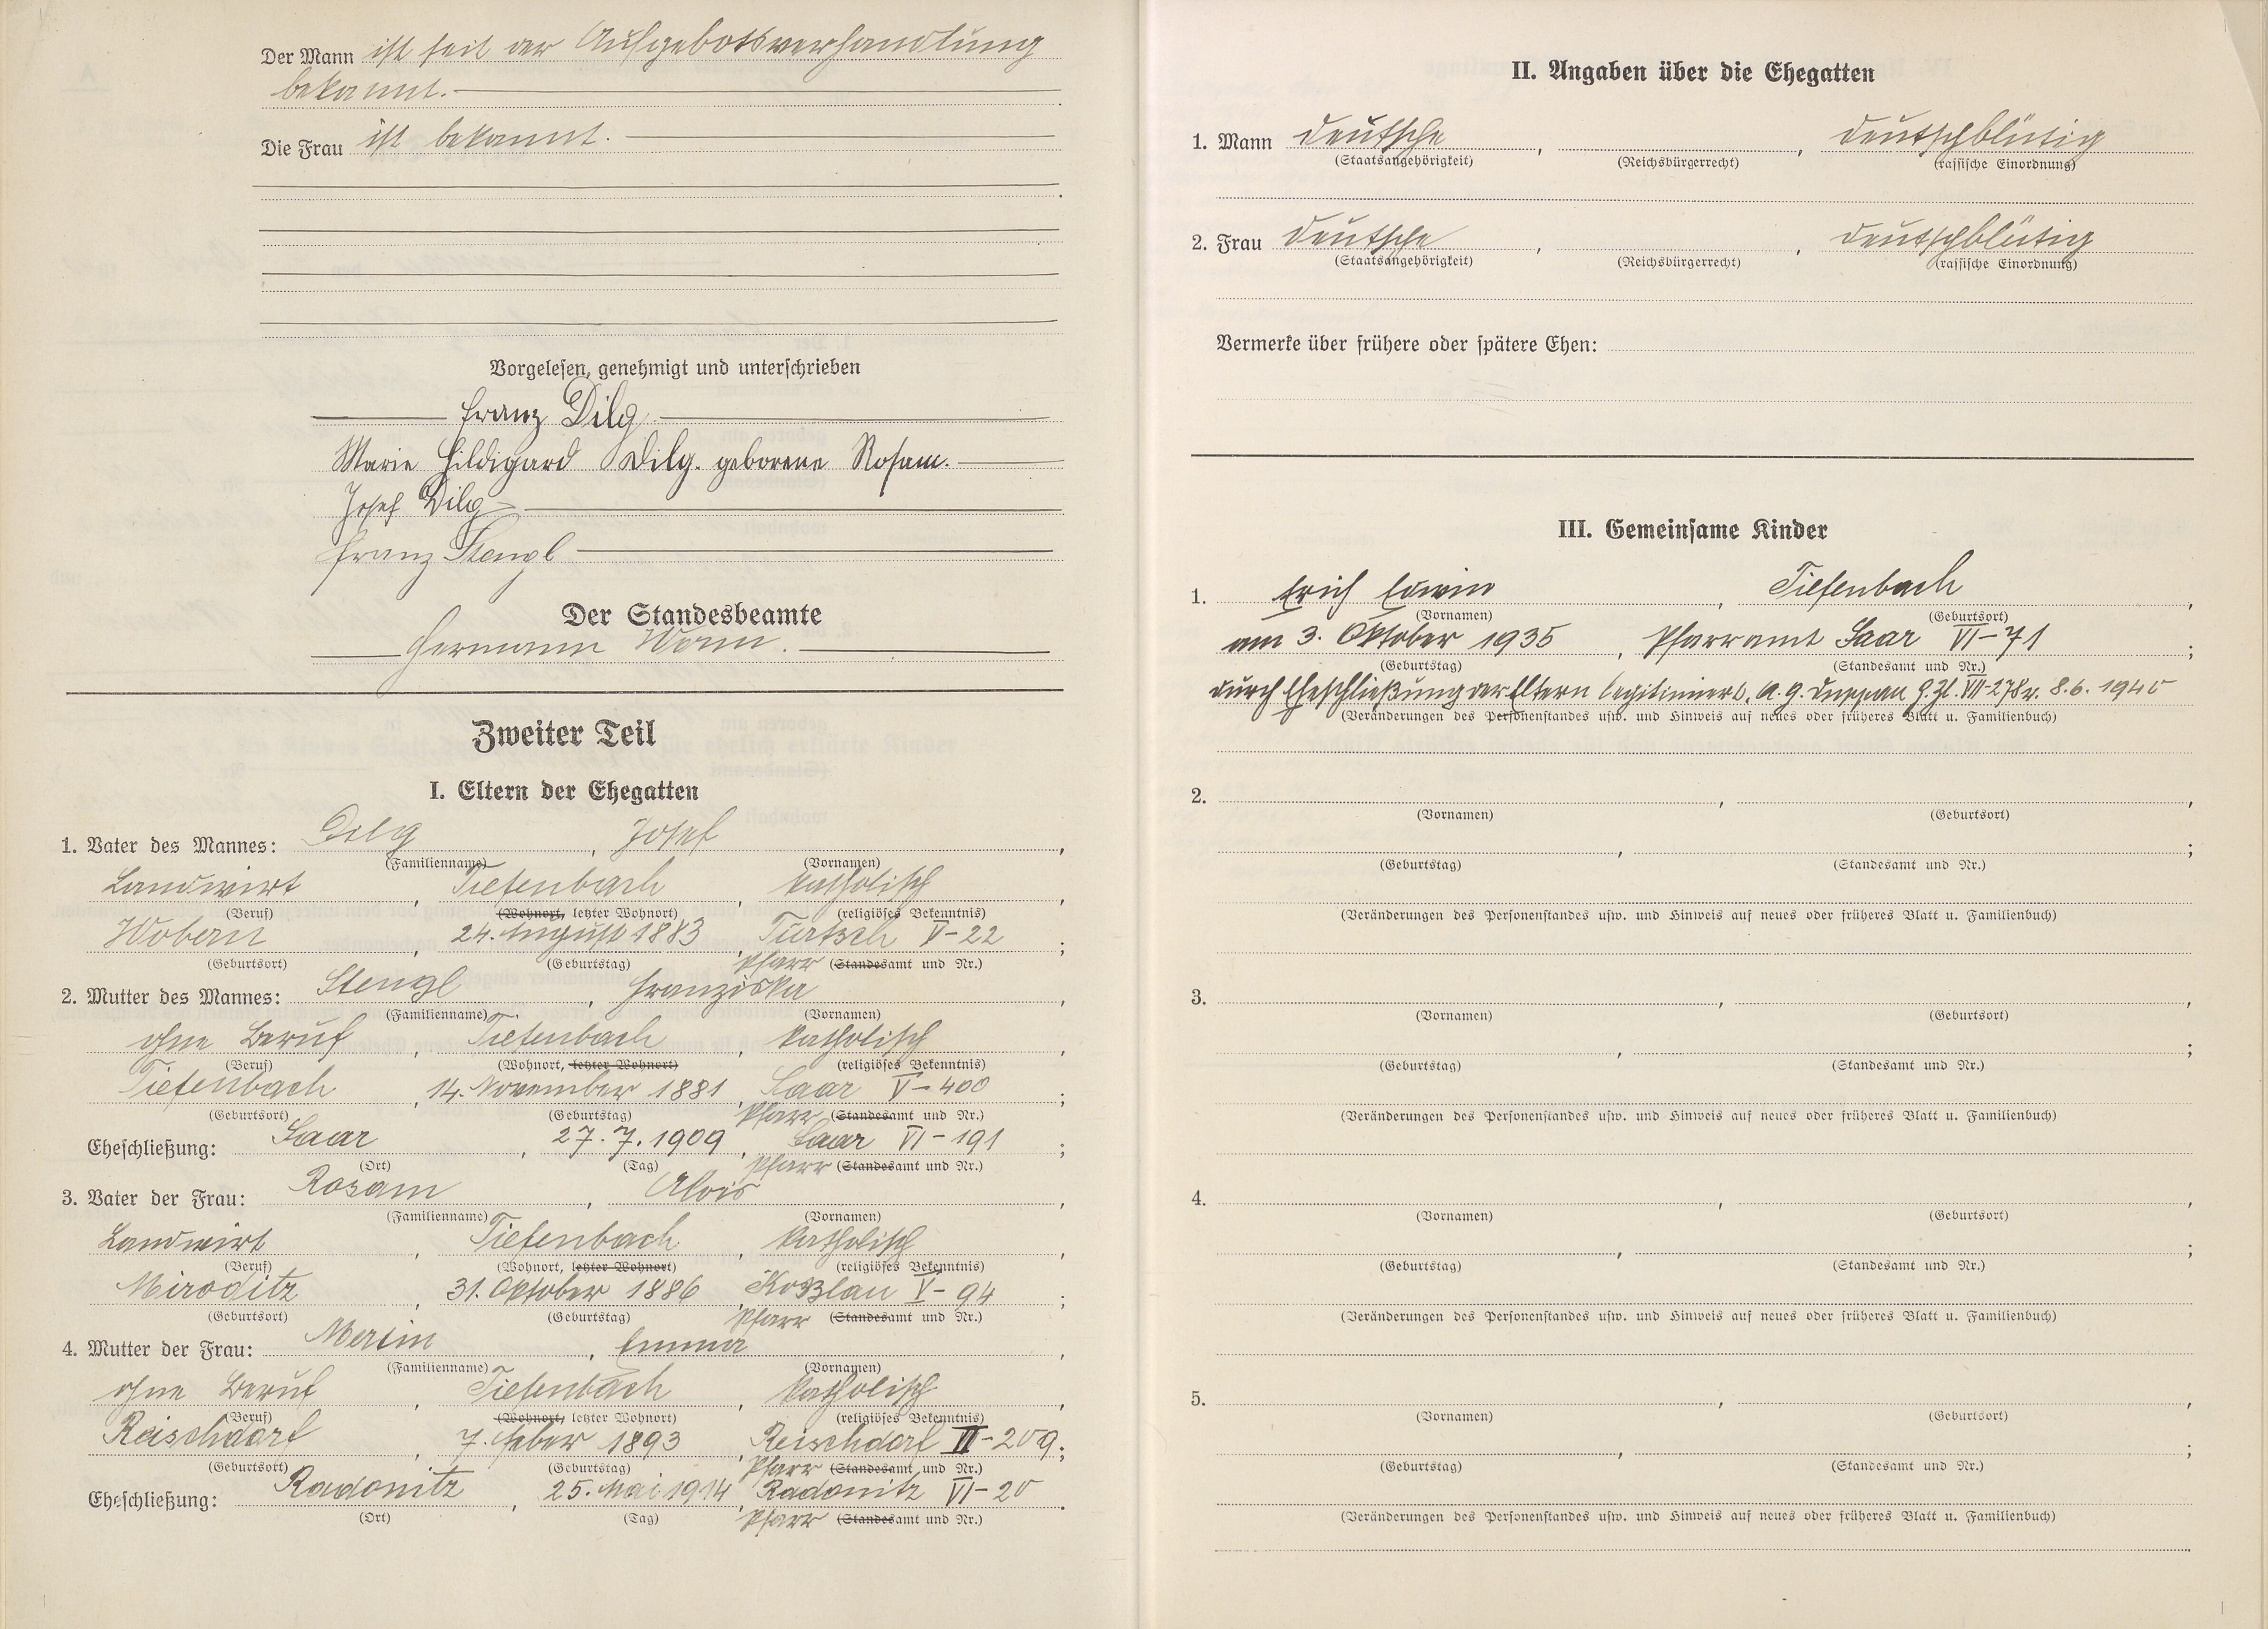 Der Mann ist seit der Aufgebotsverhandlung
bekannt.
Die Frau ist bekannt.
Vorgelesen, genehmigt und unterschrieben
Franz Dilg
Marie Hildigard Dilg. geborene Rosam.
Josef Dilg
Franz Stengl
Der Standesbeamte
Hermann
Zweiter Teil
I. Eltern der Ehegatten
1. Vater des Mannes: Dilg, Josef,
(Familienname) (Vornamen)
Landwirt, Tiefenbach, katholisch,
(Beruf) (Wohnort, letzter Wohnort) (religiöses Bekenntnis)
Wobern, 24. August 1883, Turtsch V-22;
(Geburtsort) (Geburtstag) Pfarr (Standesamt und Nr.)
2. Mutter des Mannes: Stengl, Franziska,
(Familienname) (Vornamen)
ohne Beruf, Tiefenbach, katholisch,
(Beruf) (Wohnort, letzter Wohnort) (religiöses Bekenntnis)
Tiefenbach, 14. November 1881, Saar V-400;
(Geburtsort) (Geburtstag) Pfarr (Standesamt und Nr.)
Eheschließung: Saar, 27. 7. 1909, Saar VI-191;
(Ort) (Tag) Pfarr (Standesamt und Nr.)
3. Vater der Frau: Rosam, Alois,
(Familienname) (Vornamen)
Landwirt, Tiefenbach, katholisch,
(Beruf) (Wohnort, letzter Wohnort) (religiöses Bekenntnis)
Miroditz, 31. Oktober 1886, Koßlau V-94;
(Geburtsort) (Geburtstag) Pfarr (Standesamt und Nr.)
4. Mutter der Frau: Emma,
(Familienname) (Vornamen)
ohne Beruf, Tiefenbach, katholisch,
(Beruf) (Wohnort, letzter Wohnort) (religiöses Bekenntnis)
Reischdorf, 7. Feber 1893, Reischdorf II-209;
(Geburtsort) (Geburtstag) Pfarr (Standesamt und Nr.)
Eheschließung: Radonitz, 25. Mai 1914, Radonitz VI-20.
(Ort) (Tag) Pfarr (Standesamt und Nr.)
II. Angaben über die Ehegatten
1. Mann deutsche, , deutschblütig
(Staatsangehörigkeit) (Reichsbürgerrecht) (rassische Einordnung)
2. Frau deutsche, , deutschblütig
(Staatsangehörigkeit) (Reichsbürgerrecht) (rassische Einordnung)
Vermerke über frühere oder spätere Ehen:
III. Gemeinsame Kinder
1. Erich Edwin, Tiefenbach,
(Vornamen) (Geburtsort)
am 3. Oktober 1935, Pfarramt Saar VI-71;
(Geburtstag) (Standesamt und Nr.)
durch Eheschließung der Eltern legitimiert. A. G. Duppau G. Zl. VII-278 v. 8. 6. 1940
(Veränderungen des Personenstandes usw. und Hinweis auf neues oder früheres Blatt u. Familienbuch)
2. , ,
(Vornamen) (Geburtsort)
, ;
(Geburtstag) (Standesamt und Nr.)
(Veränderungen des Personenstandes usw. und Hinweis auf neues oder früheres Blatt u. Familienbuch)
3. , ,
(Vornamen) (Geburtsort)
, ;
(Geburtstag) (Standesamt und Nr.)
(Veränderungen des Personenstandes usw. und Hinweis auf neues oder früheres Blatt u. Familienbuch)
4. , ,
(Vornamen) (Geburtsort)
, ;
(Geburtstag) (Standesamt und Nr.)
(Veränderungen des Personenstandes usw. und Hinweis auf neues oder früheres Blatt u. Familienbuch)
5. , ,
(Vornamen) (Geburtsort)
, ;
(Geburtstag) (Standesamt und Nr.)
(Veränderungen des Personenstandes usw. und Hinweis auf neues oder früheres Blatt u. Familienbuch)